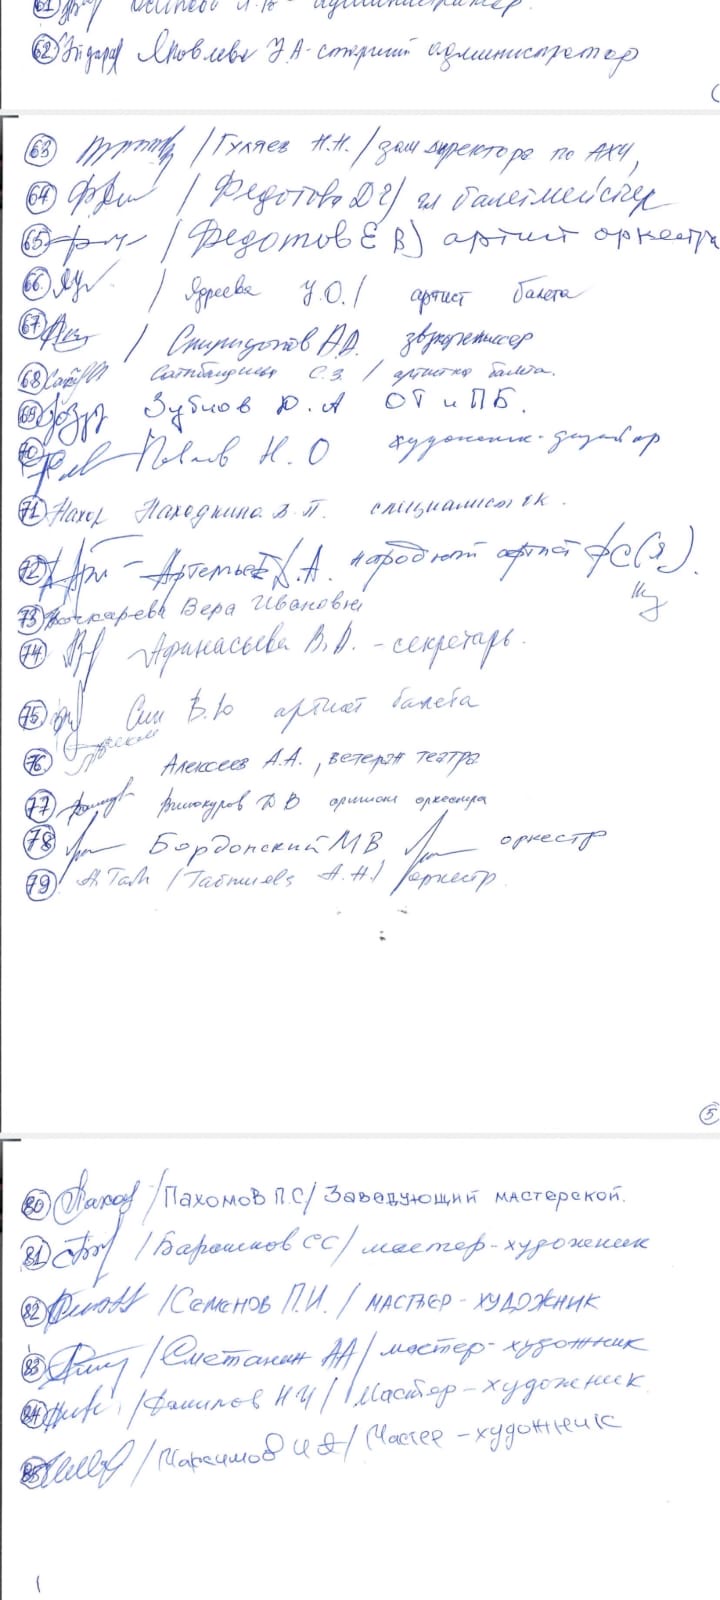 61
62 Яковлева У А - старший администратор
63 /Гуляев Н.Н./ зам директора по АХЧ,
64 / Федотова Д Г/ гл балетмейстер
65 / Федотов Е В) артист оркестра
66. / Ядреева У.О. / артист балета
67 / Спиридонов А.Д. звукорежиссер
68 С.З. / артистка балета.
69 Зубков Ю. А ОТ и ПБ.
70 Н. О художник-дизайнер
71 Наход Находкина. В. П. специалист ОК.
72 - Артемьев Д.А. народный артист РС(Я).
73 Бочкарева Вера Ивановна
74 Афанасьева В. А. - секретарь.
75 Син В.Ю артист балета
76. Алексеев А.А., ветеран театра
77 Винокуров Д В артист оркестра
78 Бордонский М В оркестр
79 А.Н./ оркестр.
5
80 /Пахомов П.С/ Заведующий мастерской.
81 /Барашков СС/ мастер-художник
82 /Семенов П.И. / мастер-художник
83 /Сметанин АА/ мастер-художник
84 /Данилов Н И/ Мастер-художник.
85 /Максимов И А/ Мастер-художник